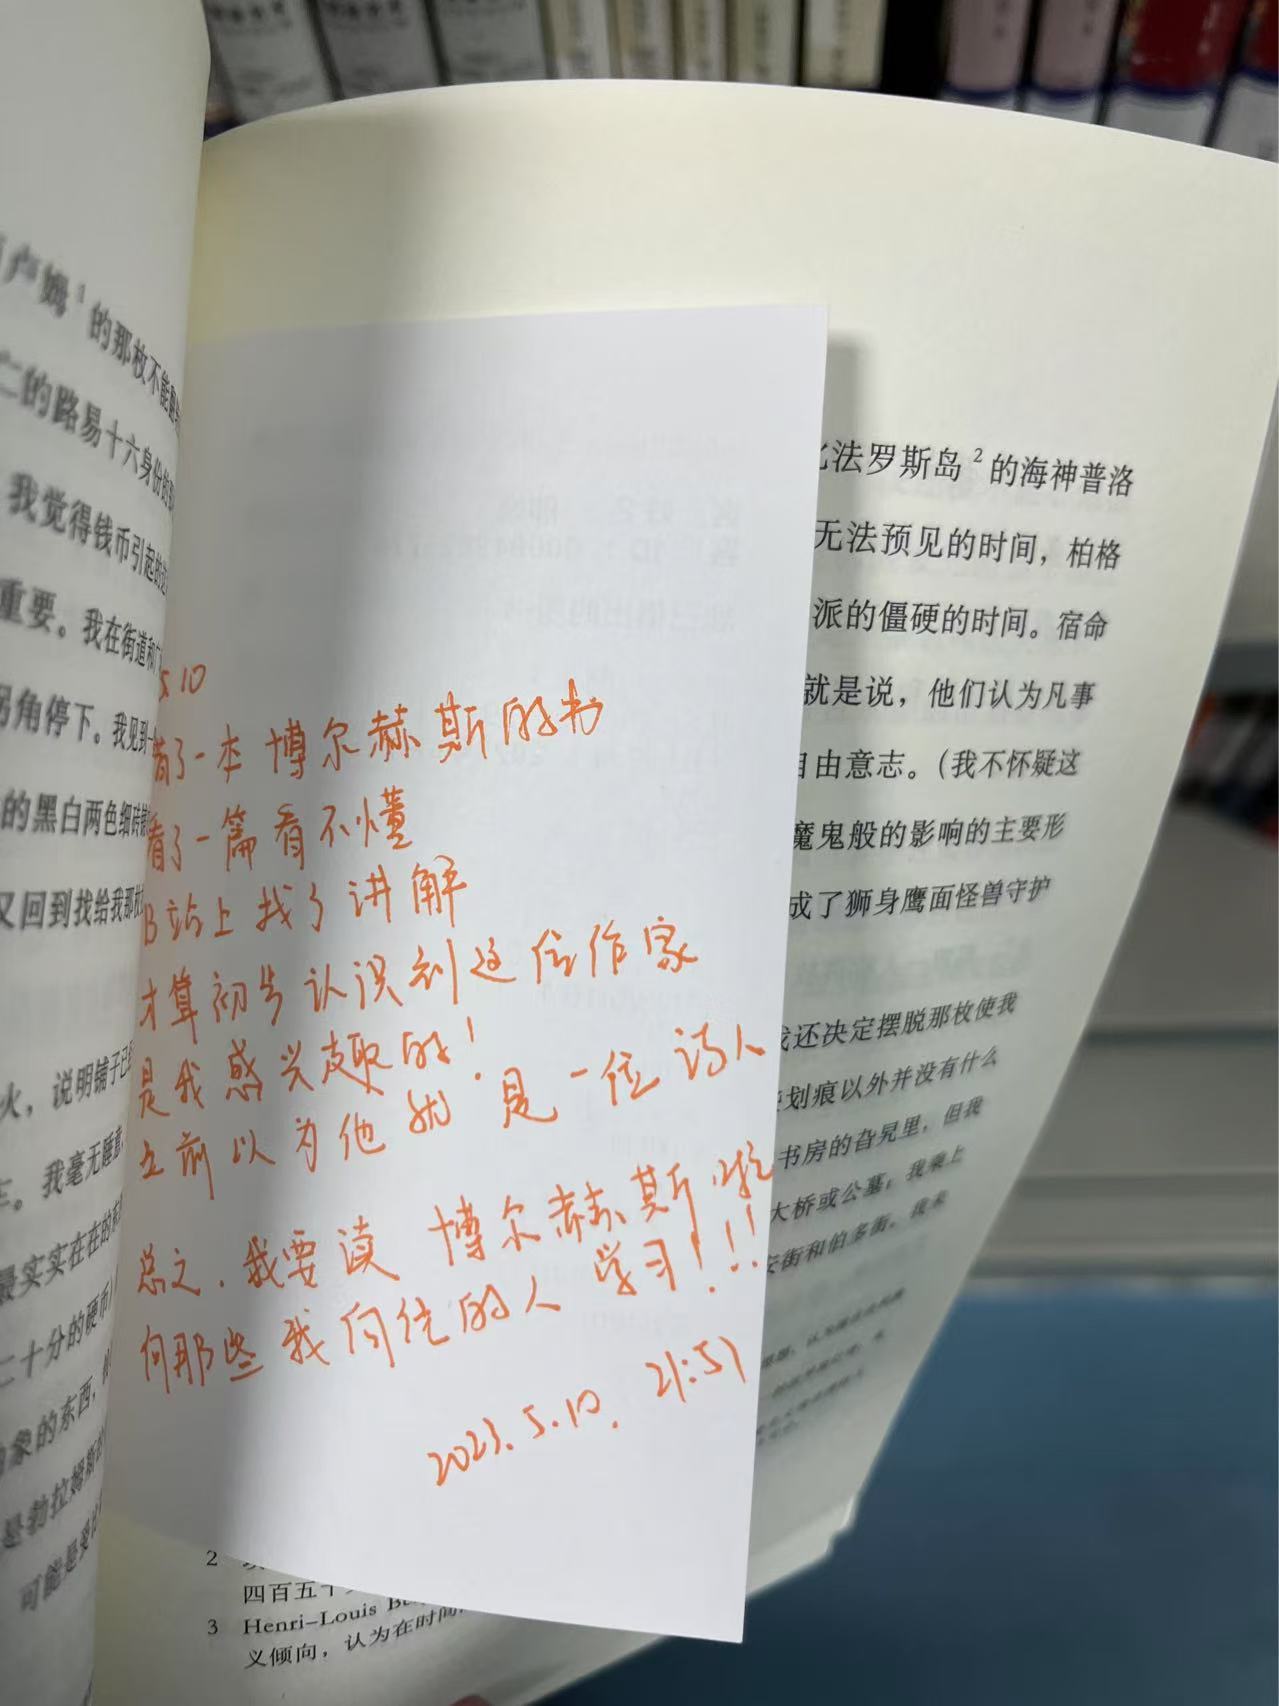 卢姆¹的那枚不能
仁的路易十六身份
我觉得钱币引起的
重要。我在街道和
拐角停下。我见到一
的黑白两色细砖
又回到找给我那枚
火，说明铺子已
车。我毫无睡意
最实实在在的
二十分的硬币
抽象的东西，
是勃拉姆斯
可能是
5.10
借了一本博尔赫斯的书
看了一篇看不懂
B站上找了讲解
才算初步认识到这位作家
是我感兴趣的！
之前以为他就是一位诗人
总之，我要读博尔赫斯啦
向那些我向往的人学习！！！
2023.5.10. 21:51
法罗斯岛²的海神普洛
无法预见的时间，柏格
派的僵硬的时间。宿命
就是说，他们认为凡事
自由意志。（我不怀疑这
魔鬼般的影响的主要形
成了狮身鹰面怪兽守护
我还决定摆脱那枚使我
些划痕以外并没有什么
书房的旮旯里，但我
大桥或公墓；我乘上
安街和伯多街。我未
2
四百五十
3 Henri-Louis Be
义倾向，认为在时间